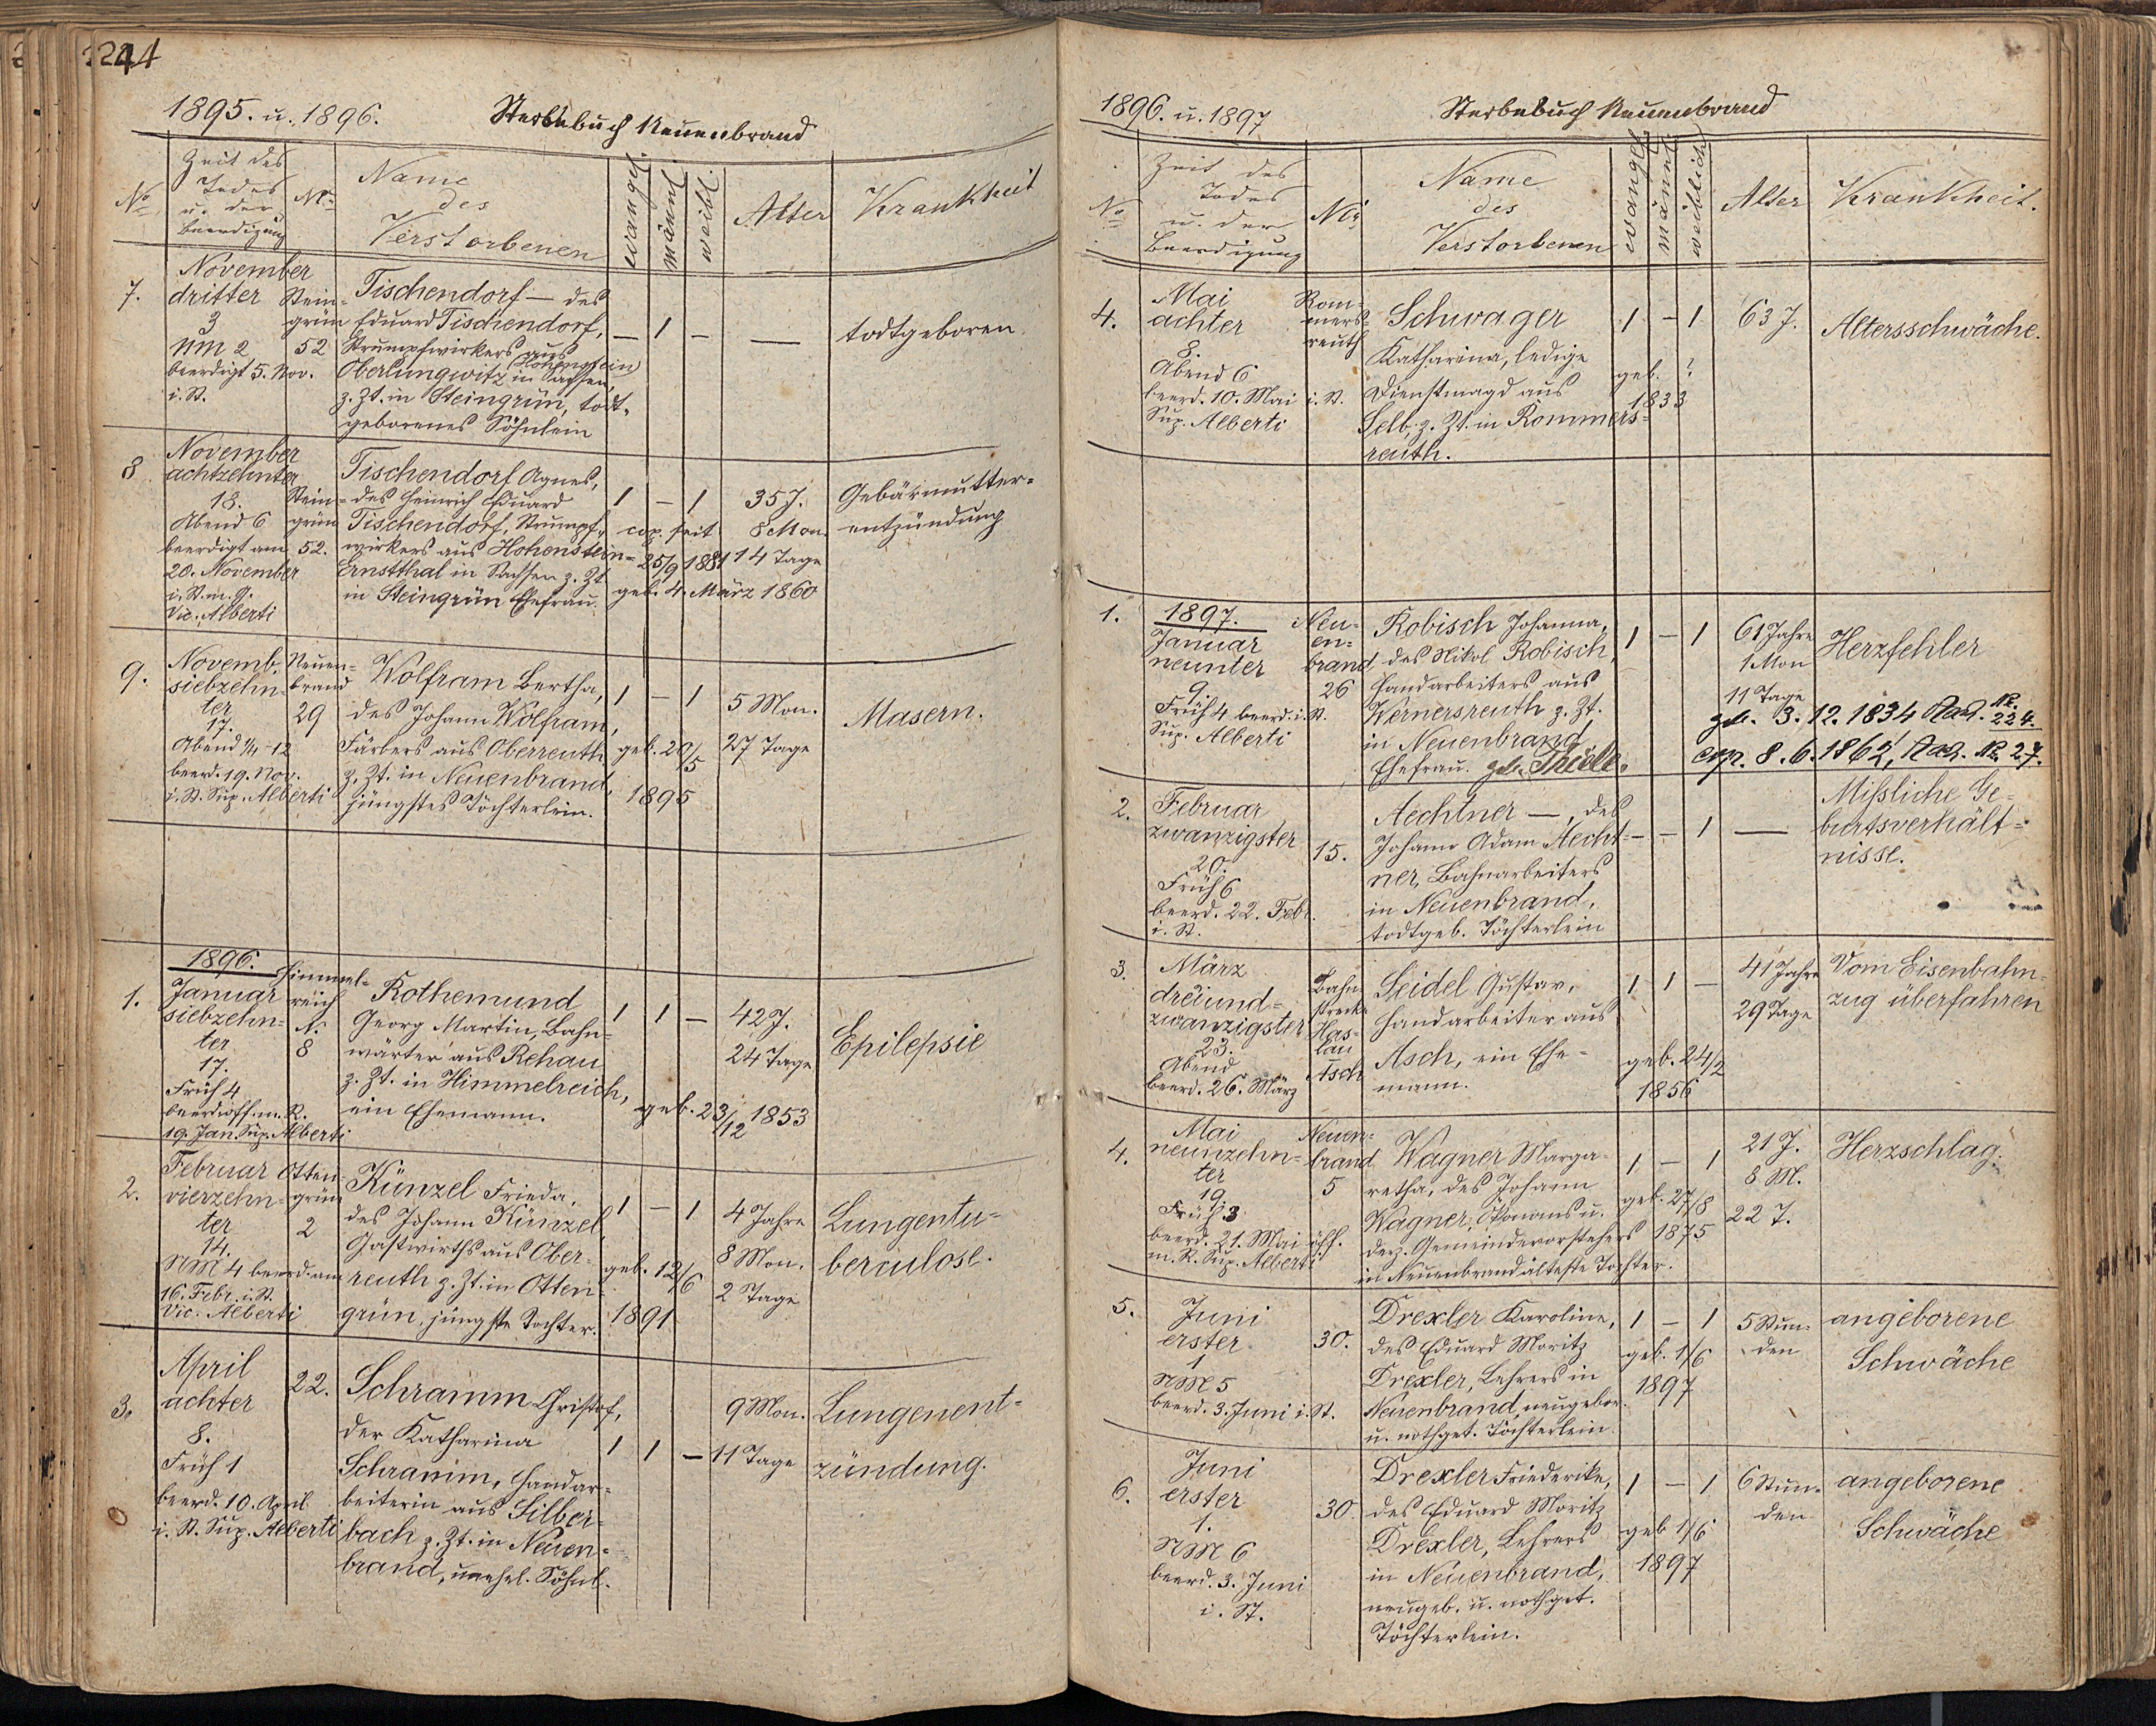 244
1895. u. 1896.
Sterbebuch Neuenbrand
No
Zeit des
Todes
u. der
Beerdigung
Nr
Name
des
Verstorbenen
evangel.
männl.
weibl.
Alter
Krankheit
7.
November
dritter
3
NM 2
beerdigt 5. Nov.
i. St.
Stein-
grün
52
Tischendorf — des
Eduard Tischendorf,
Strumpfwirkers aus
Hohenstein
Oberlungwitz in Sachsen,
z. Zt. in Steingrün, todt-
geborenes Söhnlein
— 1 —
—
todtgeboren
8
November
achtzehnter
18.
Abend 6
beerdigt am
20. November
i. St. m. G.
Vic. Alberti
Stein-
grün
52.
Tischendorf Agnes,
des Heinrich Eduard
Tischendorf, Strumpf-
wirkers aus Hohenstein-
Ernstthal in Sachsen z. Zt
in Steingrün Ehefrau.
1 — 1
cop. seit
25/9 1881
geb. 4. März 1860
35 J.
8 Mon.
14 Tage
Gebärmutter-
entzündung
9.
Novemb.
siebzehn-
ter
17.
Abend 1/4 12
beerd. 19. Nov.
i. St. Sup. Alberti
Neuen-
brand
29
Wolfram Bertha,
des Johann Wolfram,
Färbers aus Oberreuth
z. Zt. in Neuenbrand,
jüngstes Töchterlein.
1 — 1
geb. 20/5
1895
5 Mon.
27 Tage
Masern.
1896.
1.
Januar
siebzehn-
ter
17.
Früh 4
beerd. öff. m. R.
19. Jan. Sup. Alberti
Himmel-
reich
N.
8
Rothemund
Georg Martin, Bahn-
wärter aus Rehau
z. Zt. in Himmelreich,
ein Ehemann.
1 1 —
geb. 23/12 1853
42 J.
24 Tage
Epilepsie
2.
Februar
vierzehn-
ter
14.
NM 4 beerd. am
16. Febr. i. St.
Vic. Alberti
Otten-
grün
2
Künzel Frieda,
des Johann Künzel,
Gastwirths aus Ober-
reuth z. Zt. in Otten-
grün, jüngste Tochter.
1 — 1
geb. 12/6
1891
4 Jahre
8 Mon.
2 Tage
Lungentu-
berculose.
3.
April
achter
8.
Früh 1
beerd. 10. April
i. St. Sup. Alberti
22.
Schramm Christof,
der Katharina
Schramm, Handar-
beiterin aus Silber-
bach z. Zt. in Neuen-
brand, unehel. Söhnl.
1 1 —
9 Mon.
11 Tage
Lungenent-
zündung.
1896. u. 1897
Sterbebuch Neuenbrand
No
Zeit des
Todes
u. der
Beerdigung
Nr
Name
des
Verstorbenen
evangel.
männl.
weiblich
Alter
Krankheit.
4.
Mai
achter
8.
Abend 6
beerd. 10. Mai i. St.
Sup. Alberti
Rom-
mers-
reuth
Schwager
Katharina, ledige
Dienstmagd aus
Selb, z. Zt. in Rommers-
reuth.
1 — 1
geb. ?
1833
63 J.
Altersschwäche.
1.
1897.
Januar
neunter
9.
Früh 4 beerd. i. St.
Sup. Alberti
Neu-
en-
brand
26
Robisch Johanna,
des Nikol Robisch,
Handarbeiters aus
Wernersreuth z. Zt.
in Neuenbrand
Ehefrau. geb. Thiele.
1 — 1
61 Jahre
1 Mon
11 Tage
geb. 3. 12. 1834 Nr. 224.
cop. 8. 6. 1862, Nr. 27.
Herzfehler
2.
Februar
zwanzigster
20.
Früh 6
beerd. 22. Febr.
i. St.
15.
Aechtner —, des
Johann Adam Aecht-
ner, Bahnarbeiters
in Neuenbrand,
todtgeb. Töchterlein
— — 1
—
Mißliche Ge-
burtsverhält-
nisse.
3.
März
dreiund-
zwanzigster
23.
Abend
beerd. 26. März
Bahn-
strecke
Has-
lau
Asch
Seidel Gustav,
Handarbeiter aus
Asch, ein Ehe-
mann.
1 1 —
geb. 24/2
1856
41 Jahre
29 Tage
Vom Eisenbahn-
zug überfahren
4.
Mai
neunzehn-
ter
19.
Früh 3
beerd. 21. Mai öff.
m. R. Sup. Alberti
Neuen-
brand
5
Wagner Marga-
retha, des Johann
Wagner, Ökonoms u.
derz. Gemeindevorstehers
in Neuenbrand älteste Tochter.
1 — 1
geb. 27/8
1875
21 J.
8 M.
22 T.
Herzschlag.
5.
Juni
erster
1
NM 5
beerd. 3. Juni i. St.
30.
Drexler Karoline,
des Eduard Moritz
Drexler, Lehrers in
Neuenbrand, neugebor.
u. nothget. Töchterlein
1 — 1
geb. 1/6
1897
5 Stun-
den
angeborene
Schwäche
6.
Juni
erster
1.
NM 6
beerd. 3. Juni
i. St.
30.
Drexler Friederike,
des Eduard Moritz
Drexler, Lehrers
in Neuenbrand,
neugeb. u. nothget.
Töchterlein.
1 — 1
geb 1/6
1897
6 Stun-
den
angeborene
Schwäche